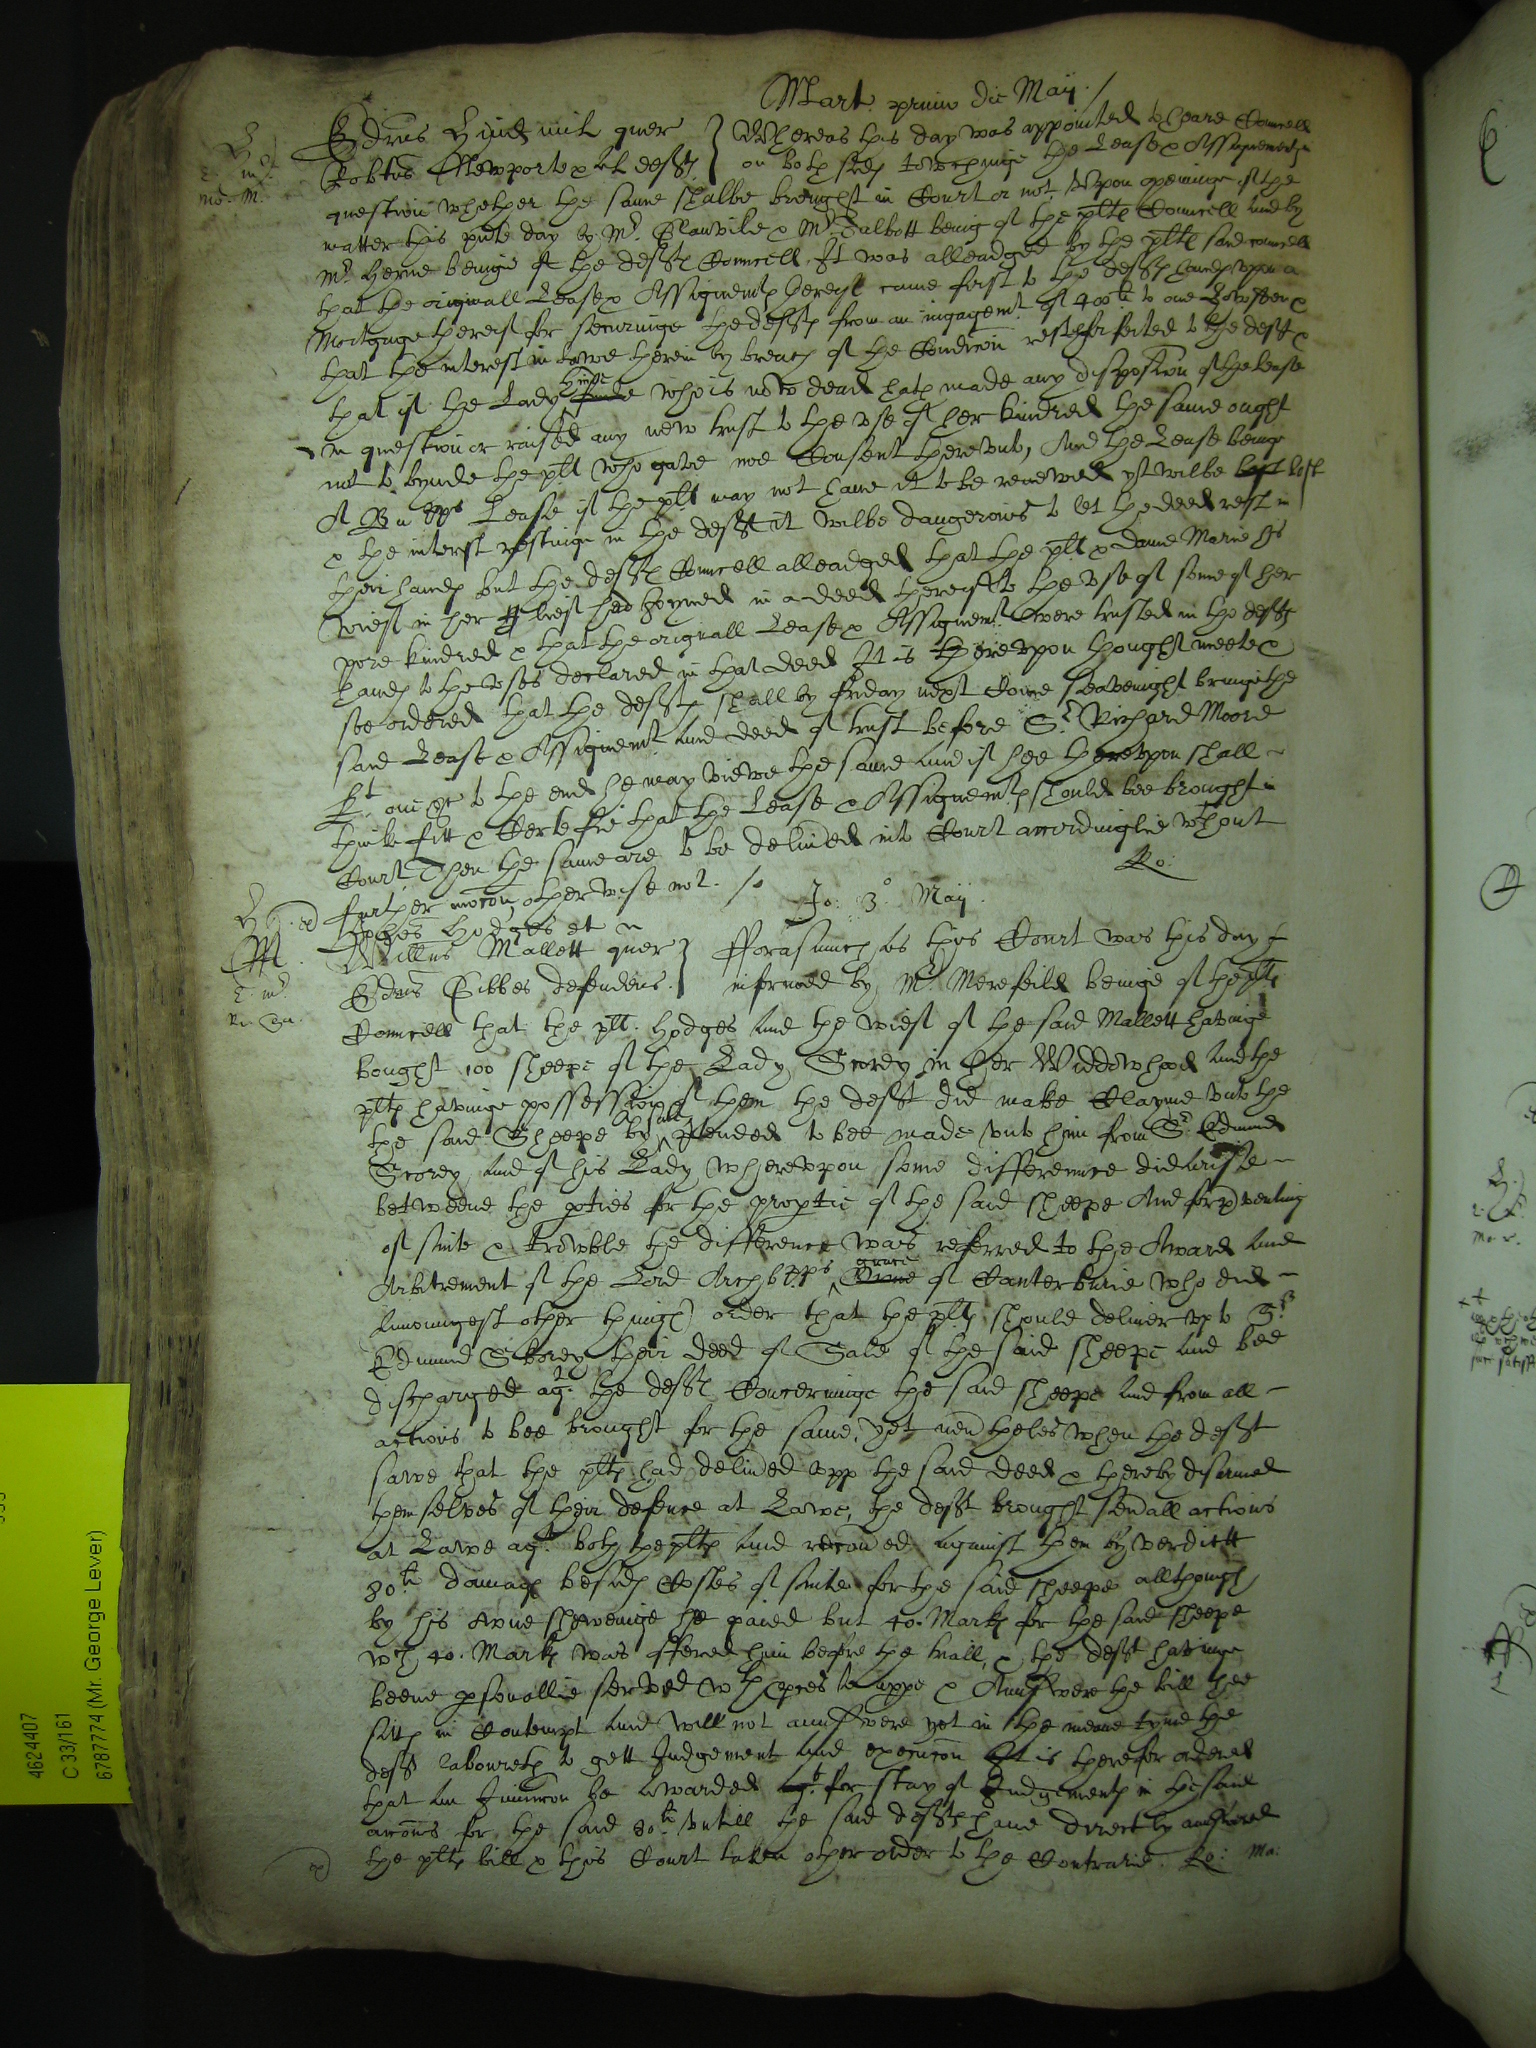 Mart. primo die Maij /
Edrus Hynd mil quer
Robtus Newporte & al defts
Whereas this day was appointed to heare Councell
on both sides towchinge the Lease & Assignements in
question whether the same shalbe brought in Court or not Uppon openinge of the
matter this pnte day by Mr. Glanvile & Mr. Talbott being of the plts Councell and by
Mr Herne beinge of the defts Councell. It was alleadged by the plts said councell
that the originall Lease & Assignemts thereof came first to the defts hands upon a
Mortgage thereof for securinge the defts from an ingagemt of 400li to one &
that the interest in Lawe therein by breach of the Condicon resteth forfeited to the defts &
that if the Lady Hinde who is now dead hath made any disposition of the lease
in question or raised any new trust to the use of her kindred the same ought
not to bynde the plt who gave noe Consent thereunto, And the Lease beinge
A Bpps Lease if the plt may not have it to be renewed yt wilbe lost
& the interst restinge in the deft it wilbe dangerous to let the deed rest in
their hands but the defts Councell alleadged that the plt & dame Marie his
wief in her lief had Joyned in a deed thereof to the use of some of her
pore kindred & that the originall Lease & Assignemt were trusted in the defts
hands to the uses declared in that deed It is thereupon thought meete &
soe ordered that the defts shall by friday next Come seavenight bringe the
said Lease & Assignemt and deed of trust before Sr Richard Moore
Kt one &c to the end he may viewe the same and if hee thereupon shall
thinke fitt & Certefie that the Lease & Assignemts should bee brought in
Court Then the same are to be delivled into Court accordinglie wthout
further mocon otherwise not. /
Ro:
Jo: 3o Maij
Hodges et
Willus Mallett quer
Edrus Gibbes defendens.
Forasmuch as this Court was this day
informed by Mr Merefeild beinge of the plts
Councell that the plt. Hodges and the wief of the said Mallett havinge
bought 100 sheepe of the Lady Scorey in her Widdowhood and the
plts havinge possession of them the deft did make Clayme unto the
the said Sheepe by sale ptended to bee made unto him from Sr Edmund
Scorey and of his Lady whereupon some difference did arise
betweene the pties for the proptie of the said sheepe And for pventing
of suite & trowble the difference was referred to the Award and
Arbitrement of the Lord Archbpps grace of Canterburie who did
amoungest other things order that the plts should deliver up to Sr
Edmund Skorey their deed of Sale of the said sheepe and bee
discharged agt. the deft Concerninge the said sheepe and from all
actions to bee brought for the same, yet nevtheles when the deft
sawe that the plts had delivled upp the said deed & thereby disarmed
themselves of their defence at Lawe, the deft brought sevall actions
at Lawe agt. both the plts and recovled against them by verdict
80li damags besides Costes of suite for the said sheepe allthough
by his owne shewenige he paied but 40. Marks for the said sheepe
wch 40. Marks was offered him before the triall, & the deft havinge
beene psonallie served wth pces to appe & Aunswere the bill hee
sitts in Contempt and will not aunswere yet in the meane tyme the
deft laboureth to gett Judgement and execucon It is therefor ordered
that an Iniuncon be awarded for stay of Judgements in the said
accons for the said 80li untill the said defts have directly answered
the plts bill & this Court taken other order to the Contrarie. Ro: Ma:
4624407
C 33/161
6787774 (Mr. George Lever)